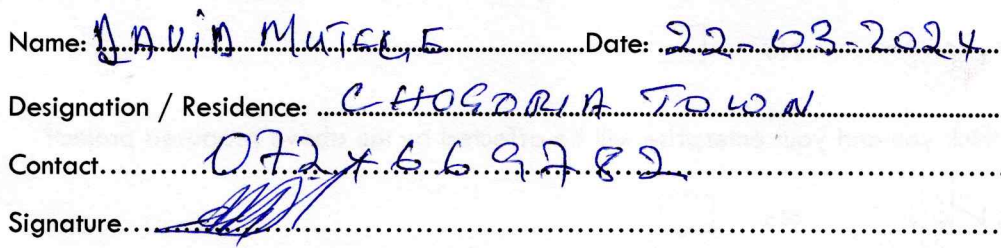 Name: DAVID MUTEGE Date: 22-03-2024
Designation / Residence: CHOGORIA TOWN
Contact
Signature